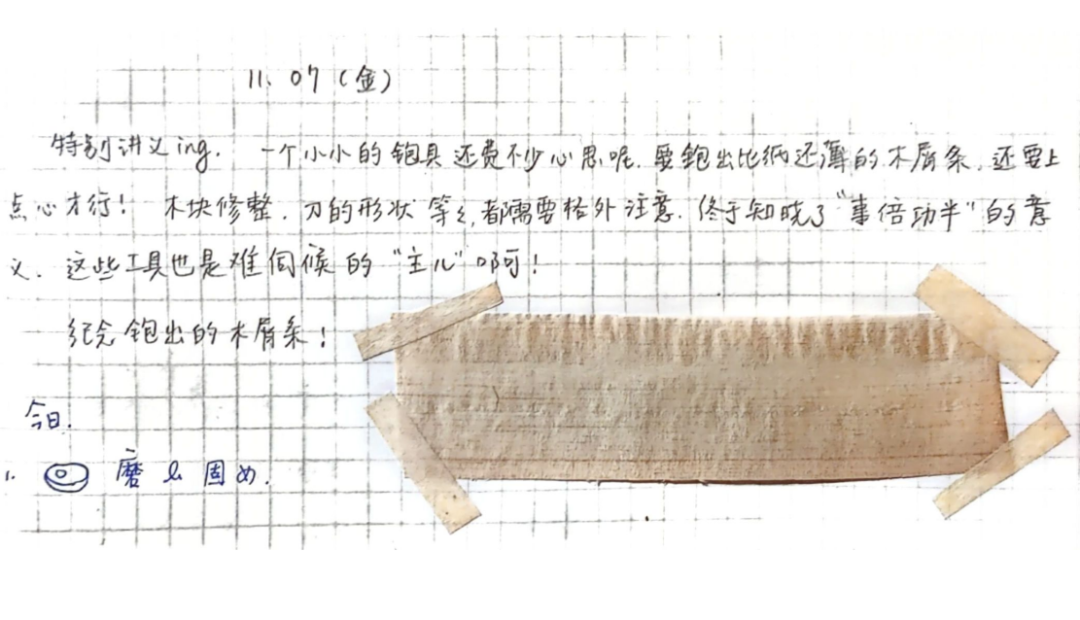 11. 07 (金)
特别讲义ing. 一个小小的铇具还费不少心思呢. 要铇出比纸还薄的木屑条, 还要上
点心才行! 木块修整. 刀的形状等々, 都需要格外注意. 终于知晓了"事倍功半"的意
义. 这些工具也是难伺候的"主儿"啊!
纪念铇出的木屑条!
今日.
1. 磨し固め.